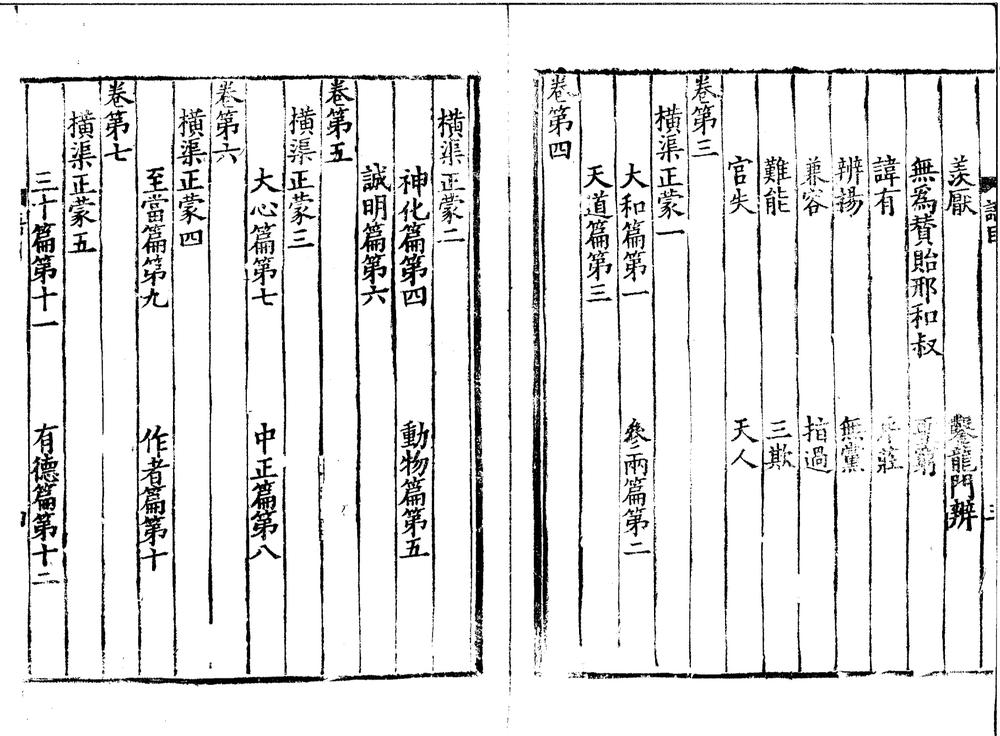 羨厭 鑿龍門辨
無為贊貽邢和叔
諱有
辨揚 無黨
兼容 指過
難能 三欺
官失 天人
卷第三
橫渠正蒙一
大和篇第一 參兩篇第二
天道篇第三
卷第四
橫渠正蒙二
神化篇第四 動物篇第五
誠明篇第六
卷第五
橫渠正蒙三
大心篇第七 中正篇第八
卷第六
橫渠正蒙四
至當篇第九 作者篇第十
卷第七
橫渠正蒙五
三十篇第十一 有德篇第十二